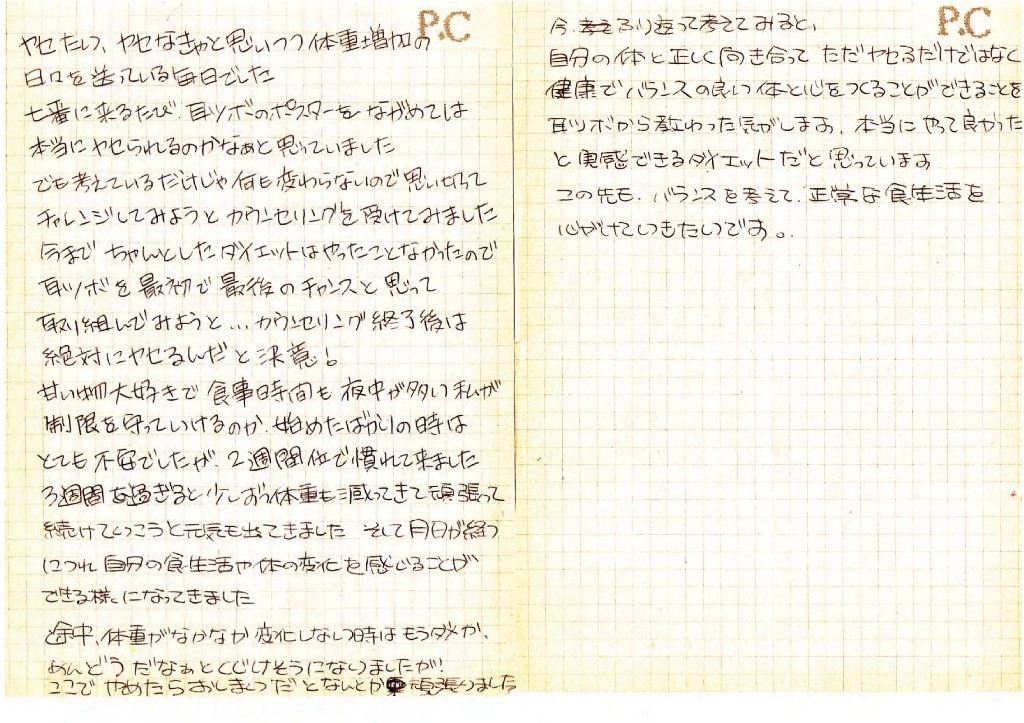 P.C
ヤセたい、ヤセなきゃと思いつつ体重増加の
日々を送っている毎日でした
七番に来るたび、耳ツボのポスターをながめては
本当にヤセられるのかなぁと思っていました
でも考えているだけじゃ何も変わらないので思い切って
チャレンジしてみようとカウンセリングを受けてみました
今までちゃんとしたダイエットはやったことなかったので
耳ツボを最初で最後のチャンスと思って
取り組んでみようと...カウンセリング終了後は
絶対にヤセるんだと決意!
甘い物大好きで食事時間も夜中が多い私が
制限を守っていけるのか、始めたばかりの時は
とても不安でしたが、2週間位で慣れて来ました
3週間を過ぎると少しずつ体重も減ってきて頑張って
続けていこうと元気も出てきました そして月日が経つ
につれ自分の食生活や体の変化を感じることが
できる様になってきました
途中、体重がなかなか変化しない時はもうダメか、
めんどうだなぁとくじけそうになりましたが!
ここでやめたらおしまいだとなんとか頑張りました
P.C
今、ふり返って考えてみると、
自分の体と正しく向き合ってただヤセるだけではなく
健康でバランスの良い体と心をつくることができることを
耳ツボから教わった気がします、本当にやって良かった
と実感できるダイエットだと思っています
この先も、バランスを考えて、正常な食生活を
心がけていきたいです。